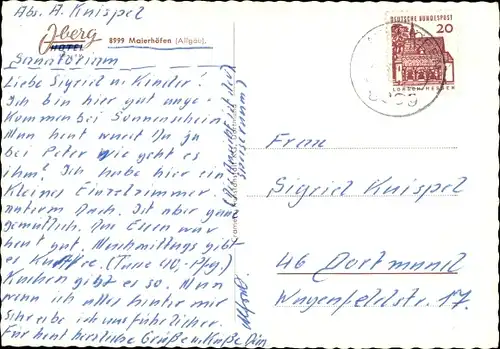 Abs. A. Knispel
Iberg
HOTEL
8999 Maierhöfen (Allgäu).
Sanatorium
Liebe Sigrid u. Kinder!
Ich bin hier gut ange-
kommen bei Sonnenschein.
Nun heut warst Du ja
bei Peter wie geht es
ihm? Ich habe hier ein
kleines Einzelzimmer
unterm Dach. Ist aber ganz
gemütlich. Das Essen war
heut gut. Nachmittags gibt
es Kaffee. (Tasse 40,- Pfg.)
Kuchen gibt es so. Nun
wenn ich alles hinter mir
schreibe ich ausführlicher.
Für heut herzliche Grüße u. Küße Dein
Alfred.
DEUTSCHE BUNDESPOST
20
LORSCH/HESSEN
8999
Frau
Sigrid Knispel
46 Dortmund
Wagenfeldstr. 17.